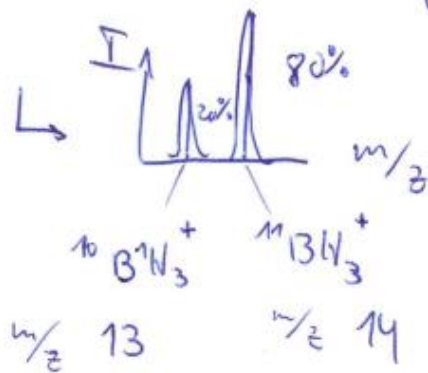 I
80%
20%
m/z
¹⁰B¹H₃⁺ ¹¹BH₃⁺
m/z 13 m/z 14